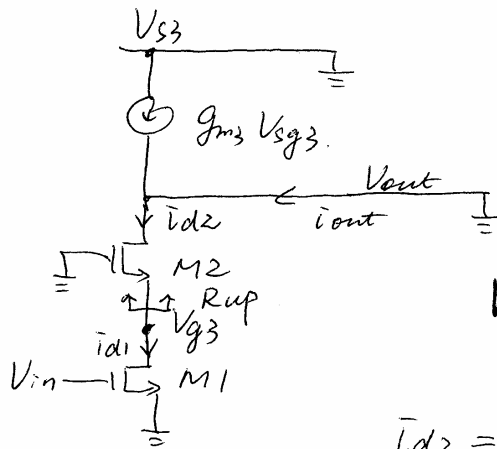 Vs3
gm3 Vsg3.
Vout
iout
id2
M2
Rup
Vg3
id1
Vin
M1
id2 =